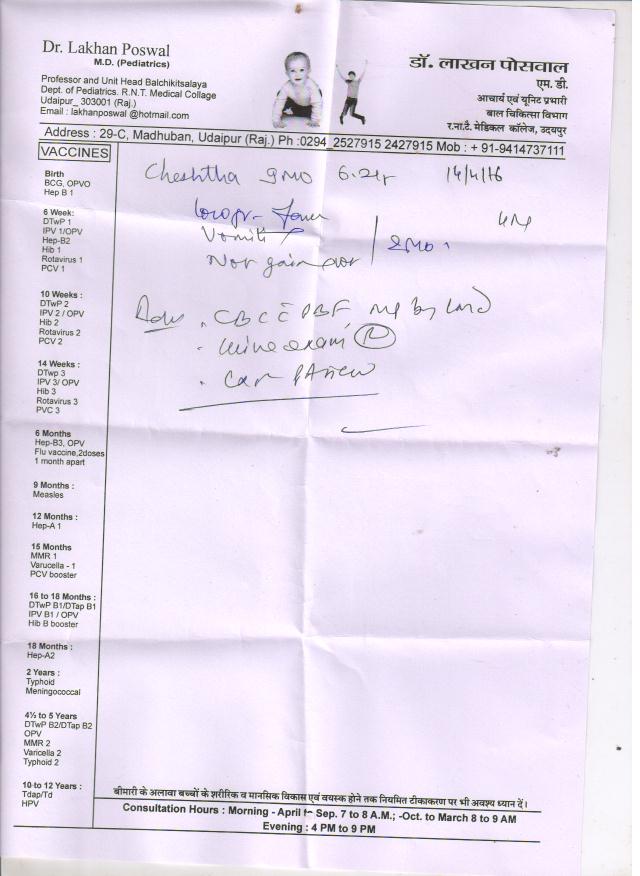 Dr. Lakhan Poswal
M.D. (Pediatrics)
Professor and Unit Head Balchikitsalaya
Dept. of Pediatrics. R.N.T. Medical Collage
Udaipur_ 303001 (Raj.)
Email : lakhanposwal @hotmail.com
डॉ. लाखन पोसवाल
एम. डी.
आचार्य एवं यूनिट प्रभारी
बाल चिकित्सा विभाग
र.ना.टै. मेडिकल कॉलेज, उदयपुर
Address : 29-C, Madhuban, Udaipur (Raj.) Ph :0294_2527915 2427915 Mob : + 91-9414737111
VACCINES
Birth
BCG, OPVO
Hep B 1
6 Week:
DTwP 1
IPV 1/OPV
Hep-B2
Hib 1
Rotavirus 1
PCV 1
10 Weeks :
DTwP 2
IPV 2 / OPV
Hib 2
Rotavirus 2
PCV 2
14 Weeks :
DTwp 3
IPV 3/ OPV
Hib 3
Rotavirus 3
PVC 3
6 Months
Hep-B3, OPV
Flu vaccine,2doses
1 month apart
9 Months :
Measles
12 Months :
Hep-A 1
15 Months
MMR 1
Varucella - 1
PCV booster
16 to 18 Months :
DTwP B1/DTap B1
IPV B1 / OPV
Hib B booster
18 Months :
Hep-A2
2 Years :
Typhoid
Meningococcal
4½ to 5 Years
DTwP B2/DTap B2
OPV
MMR 2
Varicella 2
Typhoid 2
10 to 12 Years :
Tdap/Td
HPV
Cheshtha 9 MO 14/4/16
Not gain
CBC PBF MP by
Urine exam (R)
बीमारी के अलावा बच्चों के शरीरिक व मानसिक विकास एवं वयस्क होने तक नियमित टीकाकरण पर भी अवश्य ध्यान दें।
Consultation Hours : Morning - April to Sep. 7 to 8 A.M.; -Oct. to March 8 to 9 AM
Evening : 4 PM to 9 PM